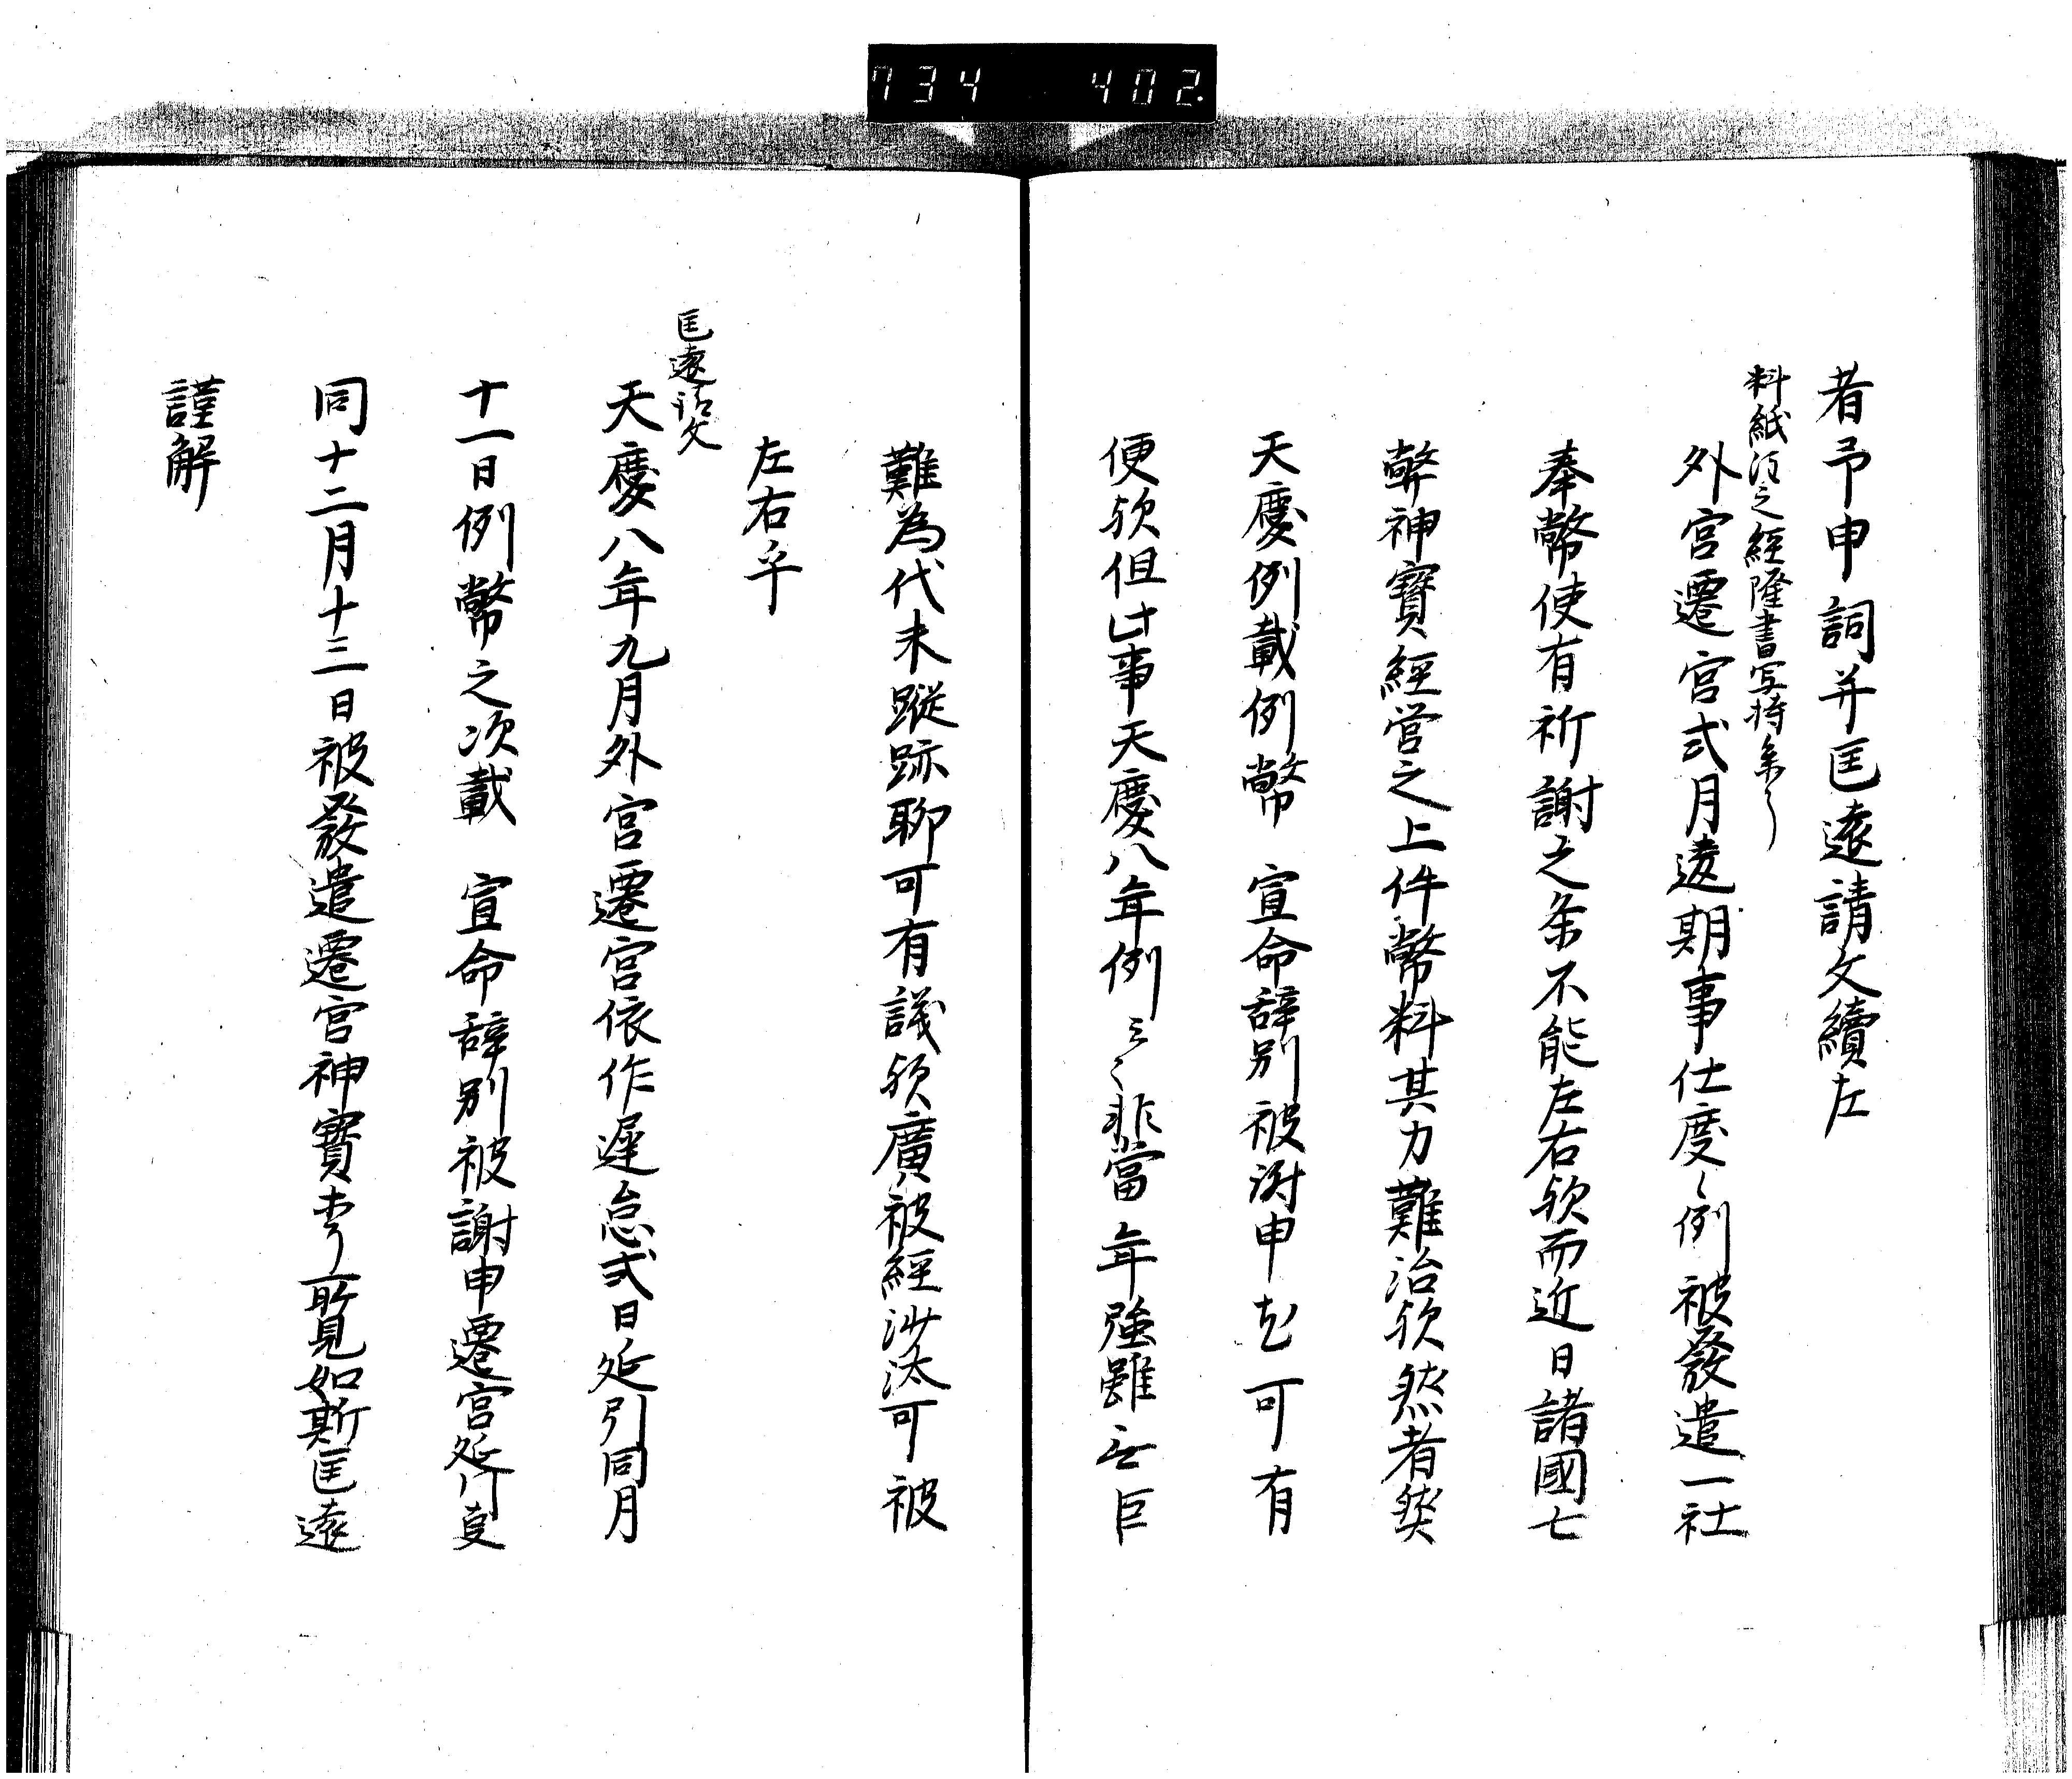 734 402
者予申詞并匡遠請文續左
料紙續之經隆書写持参了
外宮遷宮式月違期事仕度々例被發遣一社
奉幣使有祈謝之条不能左右欤而近日諸國七
弊神寶經営之上件幣料其力難治欤然者葵
天慶例載例幣 宣命辞別被謝申尤可有
便欤但此事天慶八年例云々非當年強雖無巨
難為代末蹤跡聊可有議欤廣被經沙汰可被
左右乎
匡遠請文
天慶八年九月外宮遷宮依作遅怠式日延引同月
十一日例幣之次載 宣命辞別被謝申遷宮延引事
同十二月十三日被發遣遷宮神寶等了所見如斯匡遠
謹解